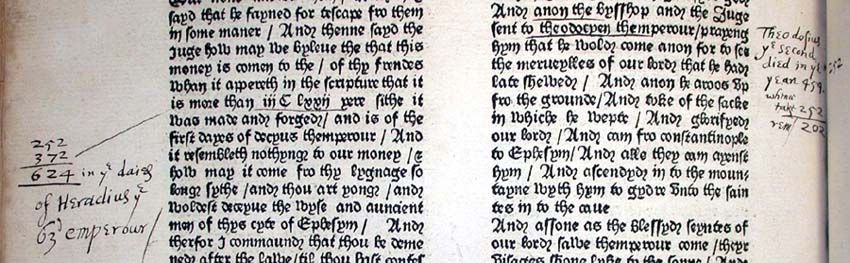 sayd that he fayned for tescape fro them
in some maner / And thenne sayd the
Juge how may we byleue the that this
money is comen to the / of thy frendes
whan it appereth in the scripture that it
is more than iii C lxxii yere sithe it
was made and forged / and is of the
first dayes of decyus themperour / And
it resembleth nothynge to our money / &
how may it come fro thy lygnage so
longe sythe / and thou art yonge / and
woldest deceyue the wyse and auncient
men of thys cyte of Ephesym / And
therfor I commaunde that thou be deme
ned after the lawe / til thou hast confes
252
372
624 in ye daies
of Heraclius ye
63d emperour /
And anon the bysshop and the Juge
sent to theodocyen themperour / prayeng
hym that he wolde come anon for to see
the merueylles of our lord that he had
late shewed / And anon he aroos up
fro the grounde / And toke of the sacke
in whiche he wepte / And gloryfyed
our lord / And cam fro constantinople
to Ephesym / And alle they cam ayenst
hym / And ascended in to the moun-
tayne wyth hym to gydre unto the sain
tes in to the caue
And assone as the blessyd seyntes of
our lord sawe themperour come / theyr
visages shone lyke to the sonne / And
Theodosius
ye second
died in ye
year 454.
whence
take 252
rem / 202